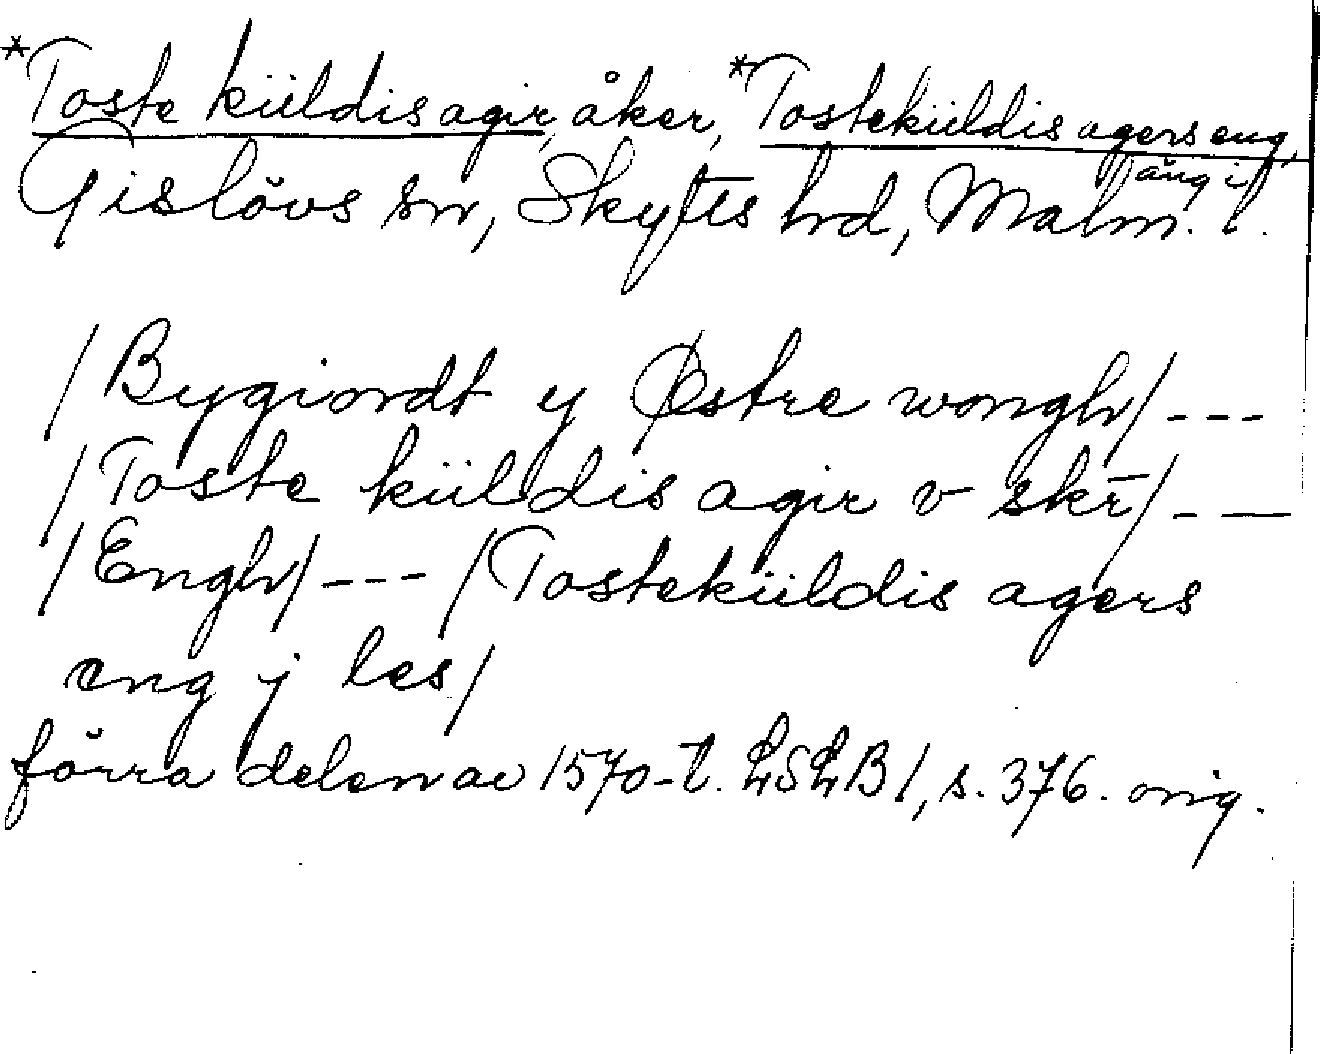 *Toste küldis agir, åker, *Tosteküldis agers eng,
äng i
Gislövs sn, Skytts hd, Malm. l.
/Bygiordt y Østre wongh/ ---
/Toste küldis agir v skr̄/ - —
/Engh/ --- /Tosteküldis agers
eng j les/
förra delen av 1570-t. LSLB 1, s. 376. orig.